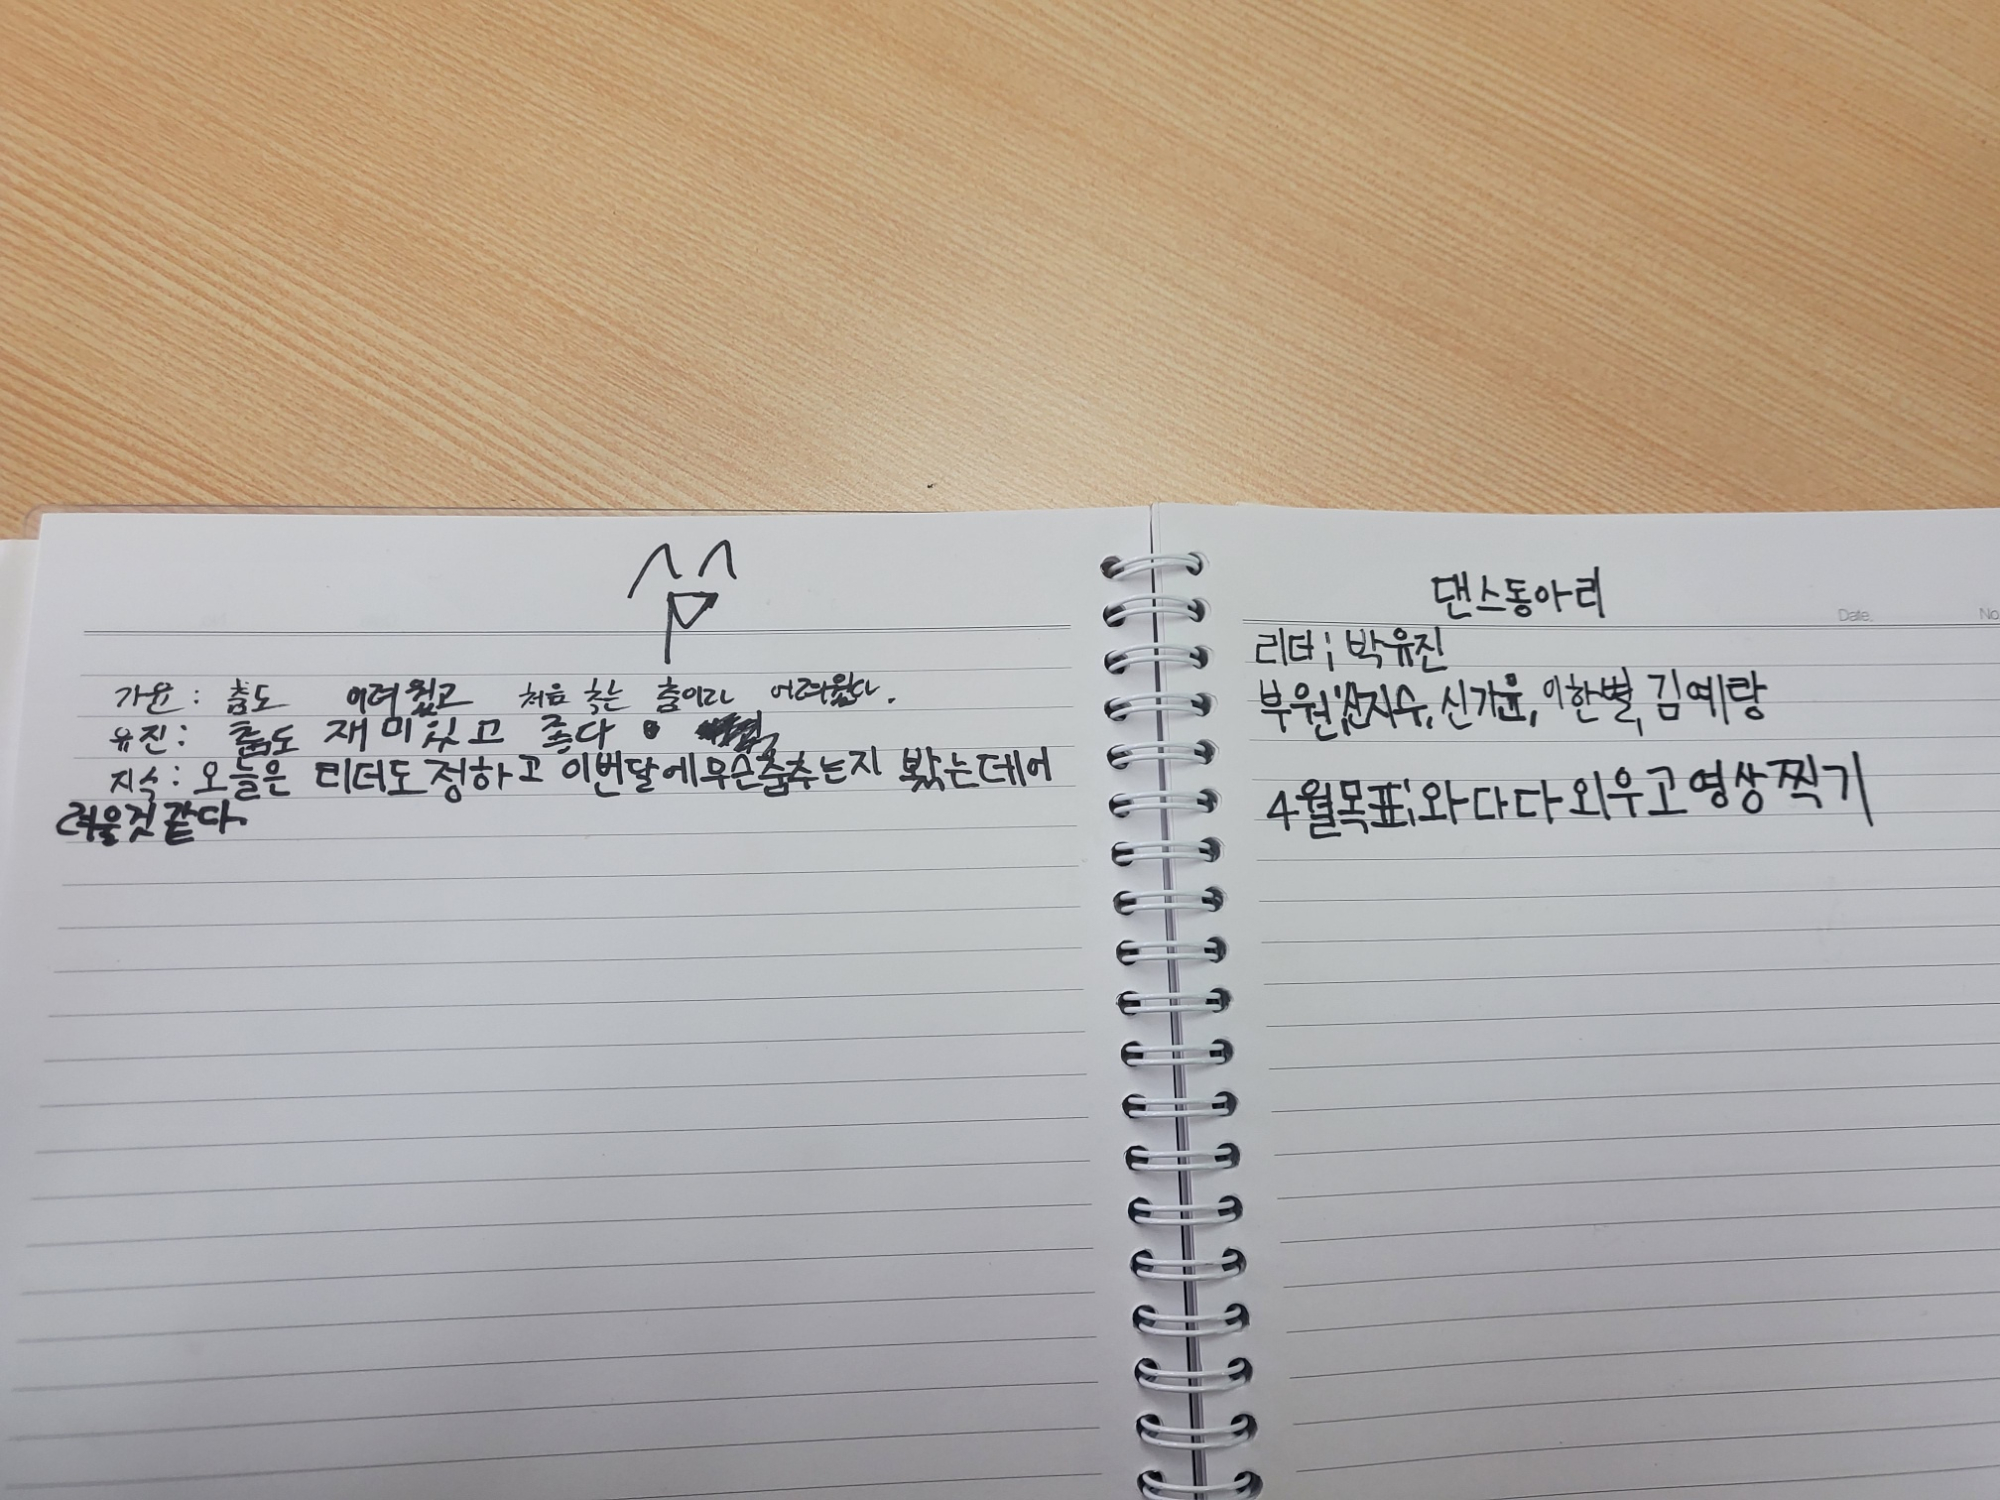 가윤: 춤도 어려웠고 처음 춪는 춤이라 어려웠다.
유진: 춤도 재미있고 좋다.
지수: 오늘은 리더도정하고 이번달에무슨춤추는지 봤는데어
려울것같다.
댄스동아리
Date. No
리더; 박유진
부원; 지수, 신가윤, 이한별, 김예랑
4월목표; 와다다외우고영상찍기